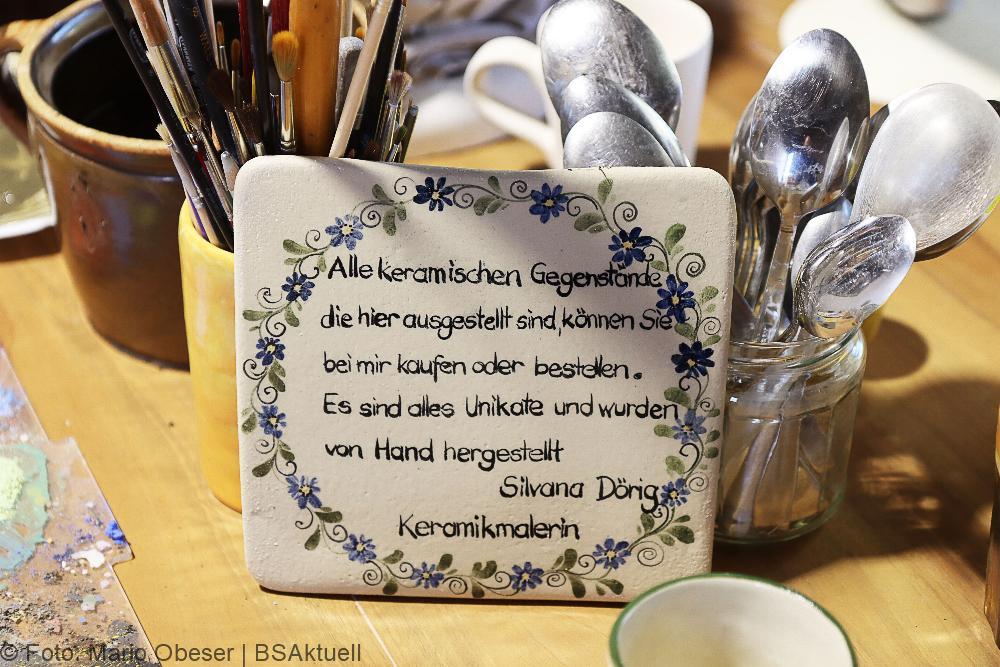 Alle keramischen Gegenstände
die hier ausgestellt sind, können Sie
bei mir kaufen oder bestellen.
Es sind alles Unikate und wurden
von Hand hergestellt
Silvana Dörig
Keramikmalerin
© Foto: Mario Obeser | BSAktuell